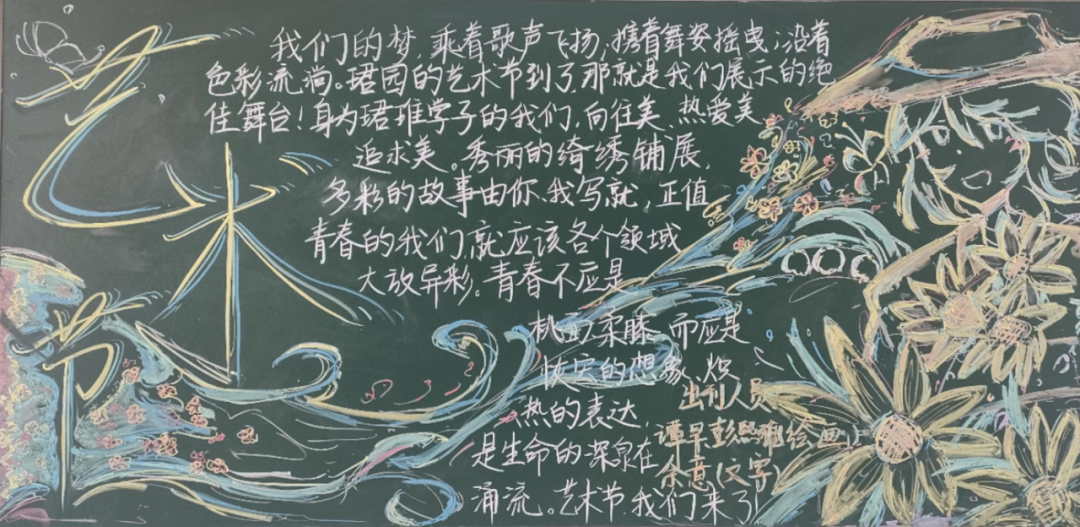 艺术节
我们的梦,乘着歌声飞扬,携着舞姿摇曳;沿着
色彩流淌。珺园的艺术节到了那就是我们展示的绝
佳舞台!身为珺琟学子的我们,向往美、热爱美、
追求美。秀丽的绮绣铺展,
多彩的故事由你我写就,正值
青春的我们,就应该各个领域
大放异彩。青春不应是
柔膝,而应是
的想象、炽
热的表达,
是生命的深泉在
涌流。艺术节,我们来了!
出刊人员
谭早 彭 绘画)
余意(文字)